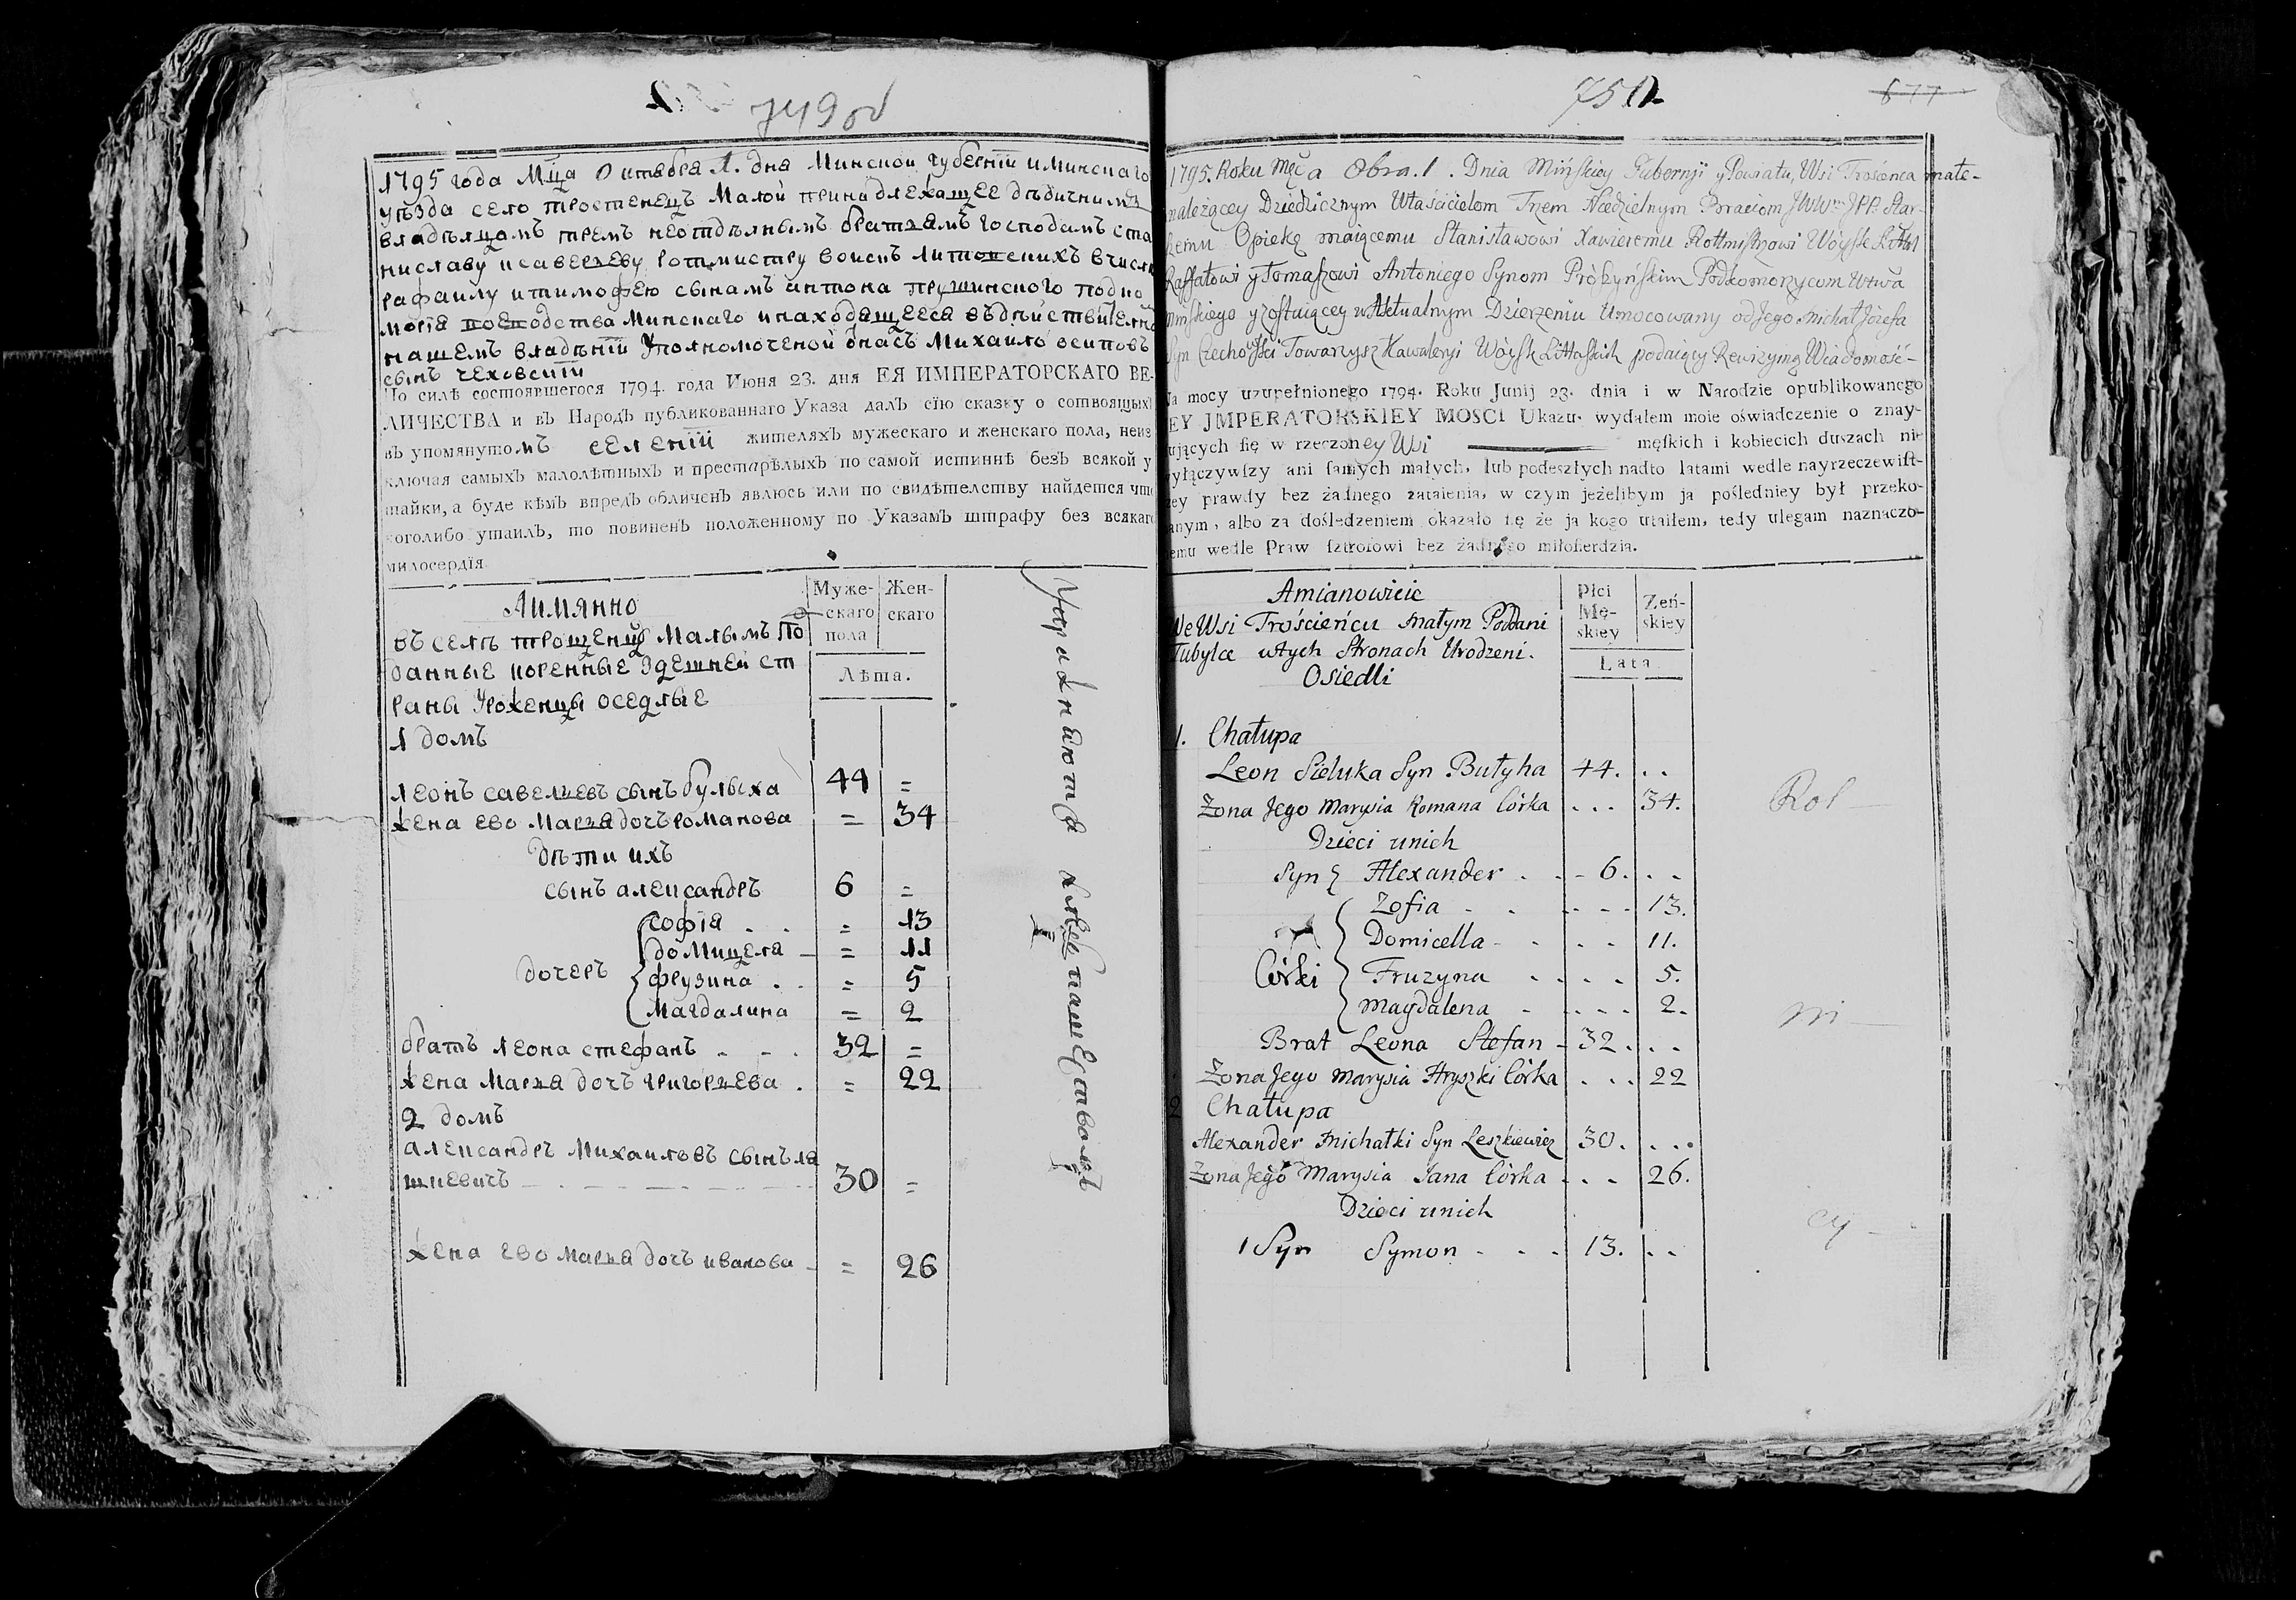 749 об
1795 года Мца Октебра 1. дна Минской губернїи и минскаго
уѣзда село тростенецъ Малой принадлежащее дѣдичнимъ
владѣлцомъ тремъ неотдѣлнымъ братьамъ господамъ ста
ниславу ксаверьеву ротмистру воискъ литовскихъ
рафаилу и тимофею сынамъ антона прушинского подко
морїа воеводства Минскаго и находящееса въдѣйствителн
нашемъ владѣнїи Уполномоченой онасъ Михаило осиповъ
сынъ чеховскїй
По силѣ состоявшегося 1794. года Июня 23. дня ЕЯ ИМПЕРАТОРСКАГО ВЕ-
ЛИЧЕСТВА и въ Народъ публикованнаго Указа далъ сїю сказку о состоящихъ
въ упомянутомъ селенїи жителяхъ мужескаго и женскаго пола, неиз
ключая самыхъ малолѣтныхъ и престарѣлыхъ по самой истиннѣ безъ всякой у
тайки, а буде кѣмъ впредь обличенъ явлюсь или по свидѣтелству найдется что
коголибо утаилъ, то повиненъ положенному по Указамъ штрафу без всякаго
милосердїя.
Аимянно
въ селѣ трощенцѣ Малымъ По
данные коренные здешней ст
раны Уроженцы оседлые
Муже-
скаго
пола
Жен-
скаго
Лѣта.
1 домъ
леонъ савельевъ сынъ булыха 44 =
жена ево Марья дочъ романова = 34
дѣти ихъ
сынъ александръ 6 =
софїа . . = 13
домицеля = 11
дочеръ фрузина . . = 5
Магдалина = 2
братъ леона стефанъ - - . 32 =
жена Марья дочъ григорьева . = 22
2 домъ
александръ Михаиловъ сынъ ля
шкевичъ 30 =
жена ево марья дочъ иванова = 26
Упражняются хлебопашествомъ
750
677
1795. Roku Mca 8bra. 1. Dnia Mińskiey Gubernji y Powiatu, Wsi Trościenca małe-
należącey Dziedzicznym Właścicielom Trzem Niedzielnym Braciom JWWm JPP. Star-
szemu Opiekę maiącemu Stanisławowi Xawieremu Rottmistrzowi Woysk Litt
Raffałowi y Tomaszowi Antoniego Synom Prószyńskim Podkomorzycom Wtwa
Mińskiego y zostaiącey w Aktualnym Dzierzeniu Umocowany od Jego Michał Józefa
Syn Czechowski Towarzysz Kawaleryi Woysk Littaskich podaięcy Rewizyiną Wiadomość-
Na mocy uzupełnionego 1794. Roku Junij 23. dnia i w Narodzie opublikowanego
EY JMPERATORSKIEY MOSCI Ukazu. wydałem moie oświadczenie o znay-
dujących się w rzeczoney Wsi męskich i kobiecich duszach nie
wyłączywszy ani samych małych, lub podeszłych nadto latami wedle nayrzeczewist-
szey prawdy bez żadnego zataienia, w czym jeżelibym ja poślednicy był przeko-
nanym, albo za dośledzeniem okazało się że ja kogo utaiłem, tedy ulegam naznaczo-
nemu wedle Praw sztrofowi bez żadnego miłosierdzia.
Amianowicie
We Wsi Trościeńcu małym Poddani
Tubylce wtych Stronach Urodzeni.
Osiedli
Płci
Mę-
skiey
Zeń-
skiey
Lata
1. Chałupa
Leon Sieluka Syn Bułyha 44. . .
Zona Jego Marysia Romana Córka . . . 34.
Dzieci unich
Syn Alexander . . - 6. . .
Zofia - . . - - . 13.
Domicella - . . . 11.
Córki Fruzyna . . . . 5.
Magdalena - . . . . 2.
Brat Leona Stefan - 32. . .
Zona Jego Marysia Hryszki Córka . . . 22
2 Chałupa
Alexander Michałki Syn Leszkiewicz 30. . . .
Zona Jego Marysia Jana Córka . . . 26.
Dzieci unich
1 Syn Symon - . . 13. . .
Rol
ni
cy